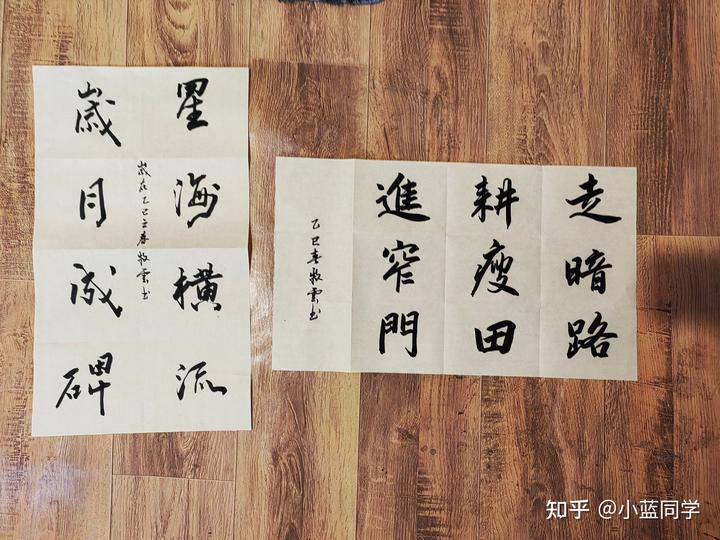 星海横流
歲月成碑
歲在乙巳立春牧雲书
走暗路
耕瘦田
進窄門
乙巳春牧雲书
知乎 @小蓝同学